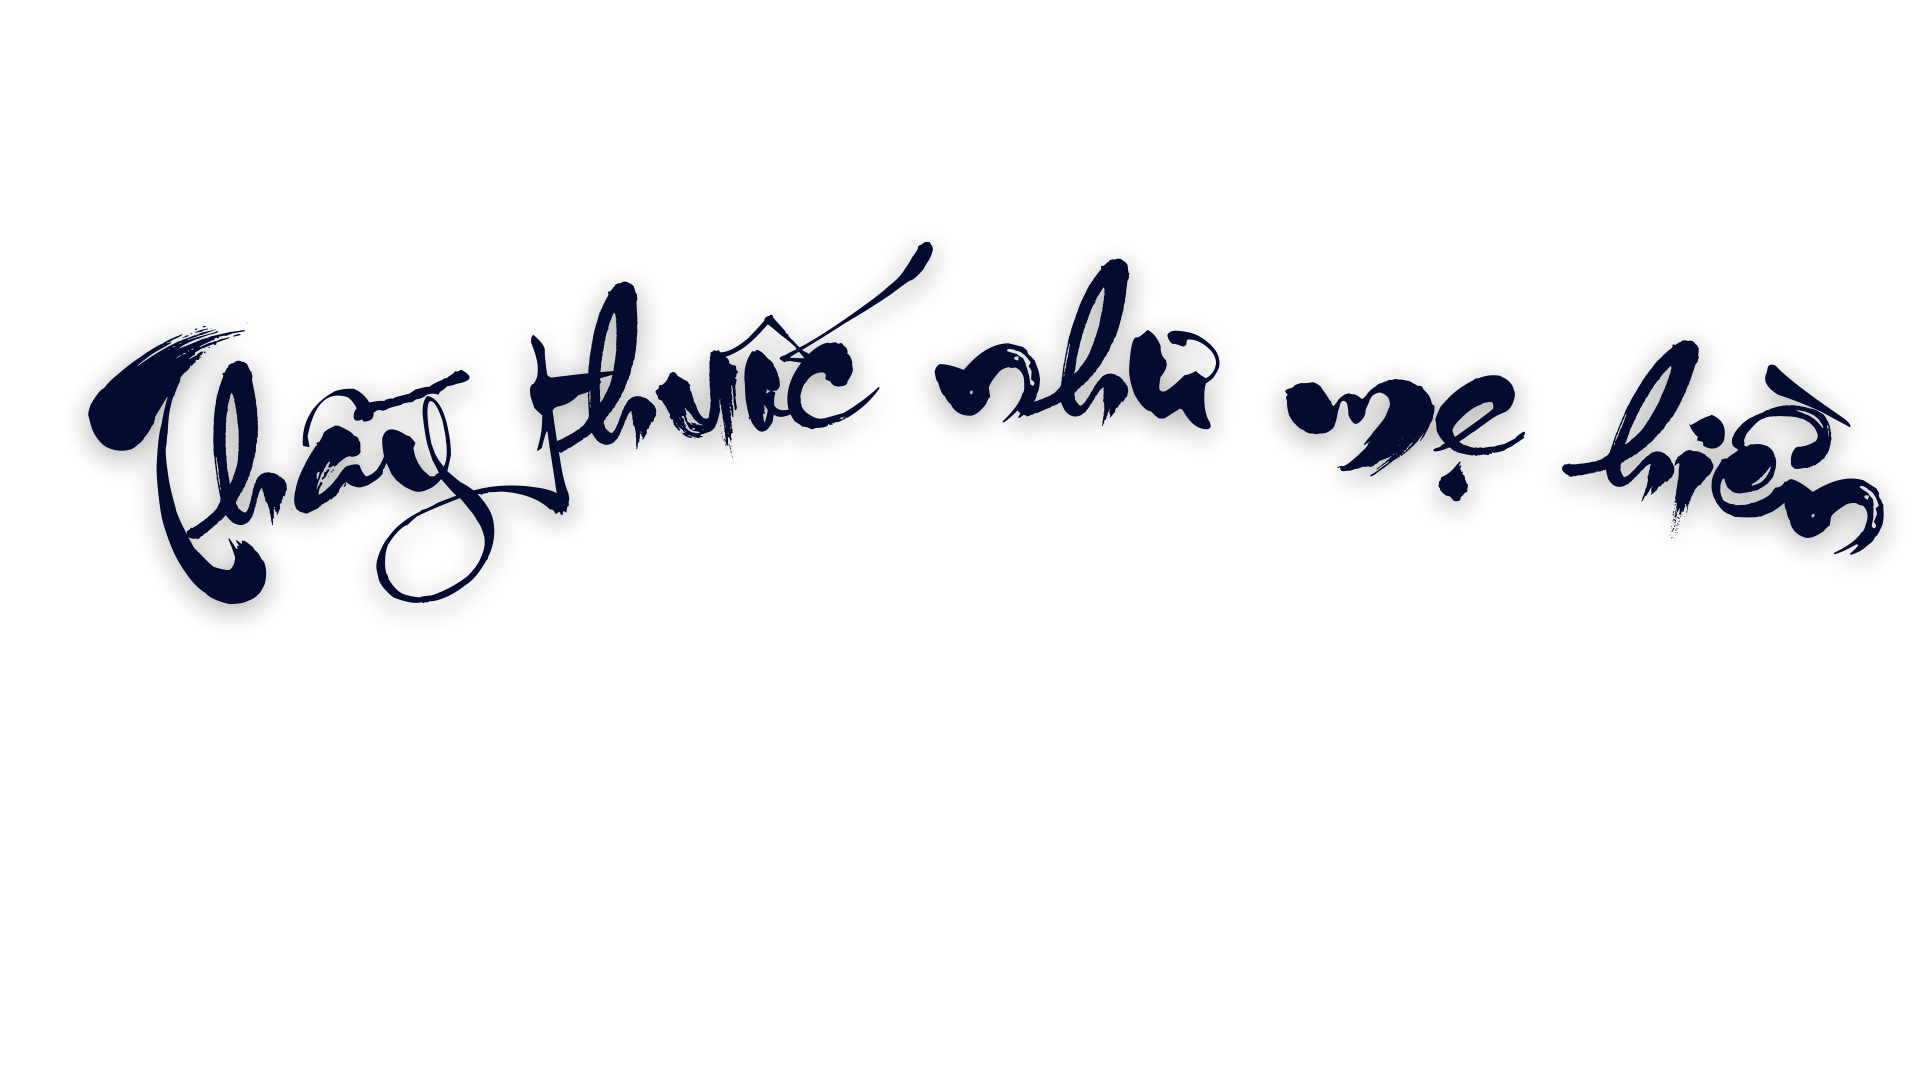 Thầy thuốc như mẹ hiền